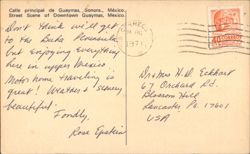 Calle principal de Guaymas, Sonora, México.
Street Scene of Downtown Guaymas, Mexico.
Don't think we'll get
to the Baha Peninsula
but enjoying everything
here in upper Mexico.
Motor home traveling is
great! Weather & scenery
beautiful!
Fondly,
Rose Epstein
1971
40
Dr & Mrs H. D. Eckhart
67 Orchard Rd.
Blossom Hill
Lancaster Pa. 17601
USA